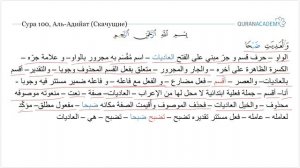 Сура 100, Аль-Адийат (Скачущие)
QURANACADEMY
بِسْمِ اللَّهِ الرَّحْمَٰنِ الرَّحِيمِ
وَالْعَادِيَاتِ ضَبْحًا
الواو – حرف قسم و جرّ مبني على الفتح العاديات – اسم مُقسم به مجرور بالواو – و علامة جرّه –
الكسرة الظاهرة على آخره – والجار والمجرور – متعلق بفعل القسم المحذوف وجوبا – والتقدير – أقسم
والعاديات – أقسم – فعل مضارع – الفعل مع فاعله – وفاعله ضمير مستتر فيه وجوبا –
أنا – أقسم – جملة فعلية ابتدائية لا محل لها من الإعراب – العاديات – صفة – نعت – منعوته موصوفه
محذوف – والخيل العاديات – فحذف الموصوف وأقيمت الصفة مكانه ضبحا – مفعول مطلق – مؤكّد
لعامله – عامله – فعل مستتر تقديره تضبح – تضبح ضبحا – فاعل تضبح – هي – العاديات